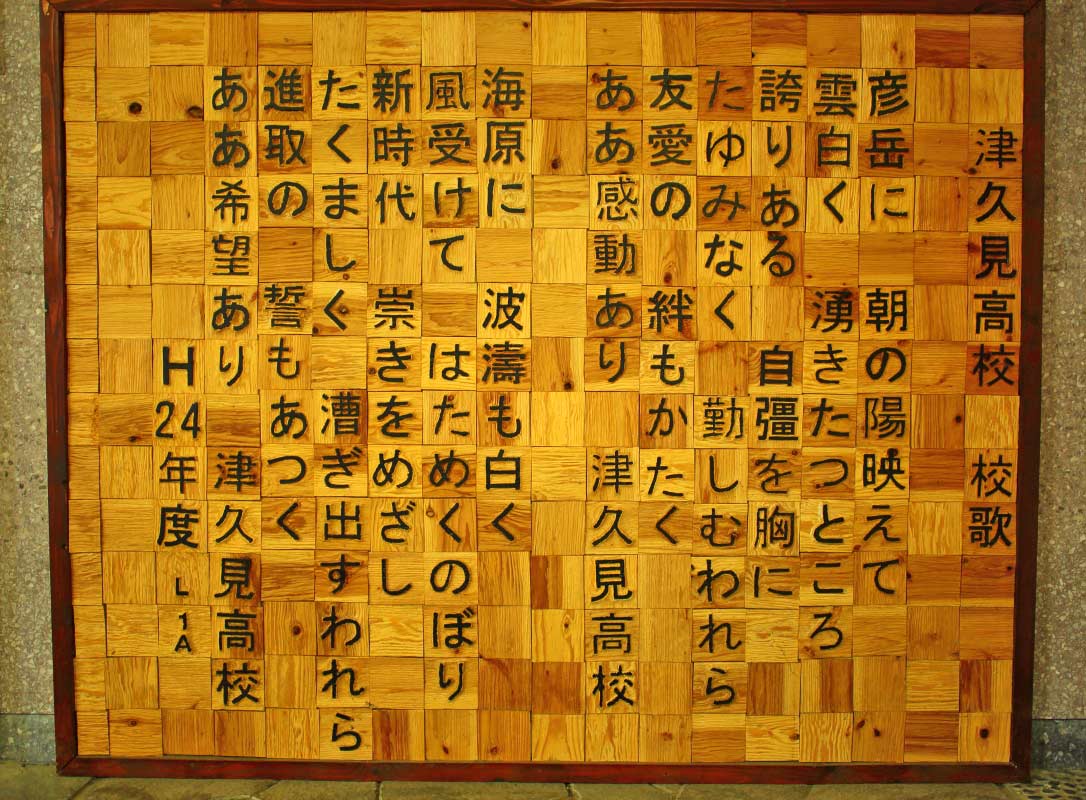 津久見高校　校歌
彦岳に　朝の陽映えて
雲白く　湧きたつところ
誇りある　自彊を胸に
たゆみなく　勤しむわれら
友愛の　絆もかたく
ああ感動あり　津久見高校
海原に　波濤も白く
風受けて　はためくのぼり
新時代　崇きをめざし
たくましく　漕ぎ出すわれら
進取の　誓もあつく
ああ希望あり　津久見高校
H24年度　L1A